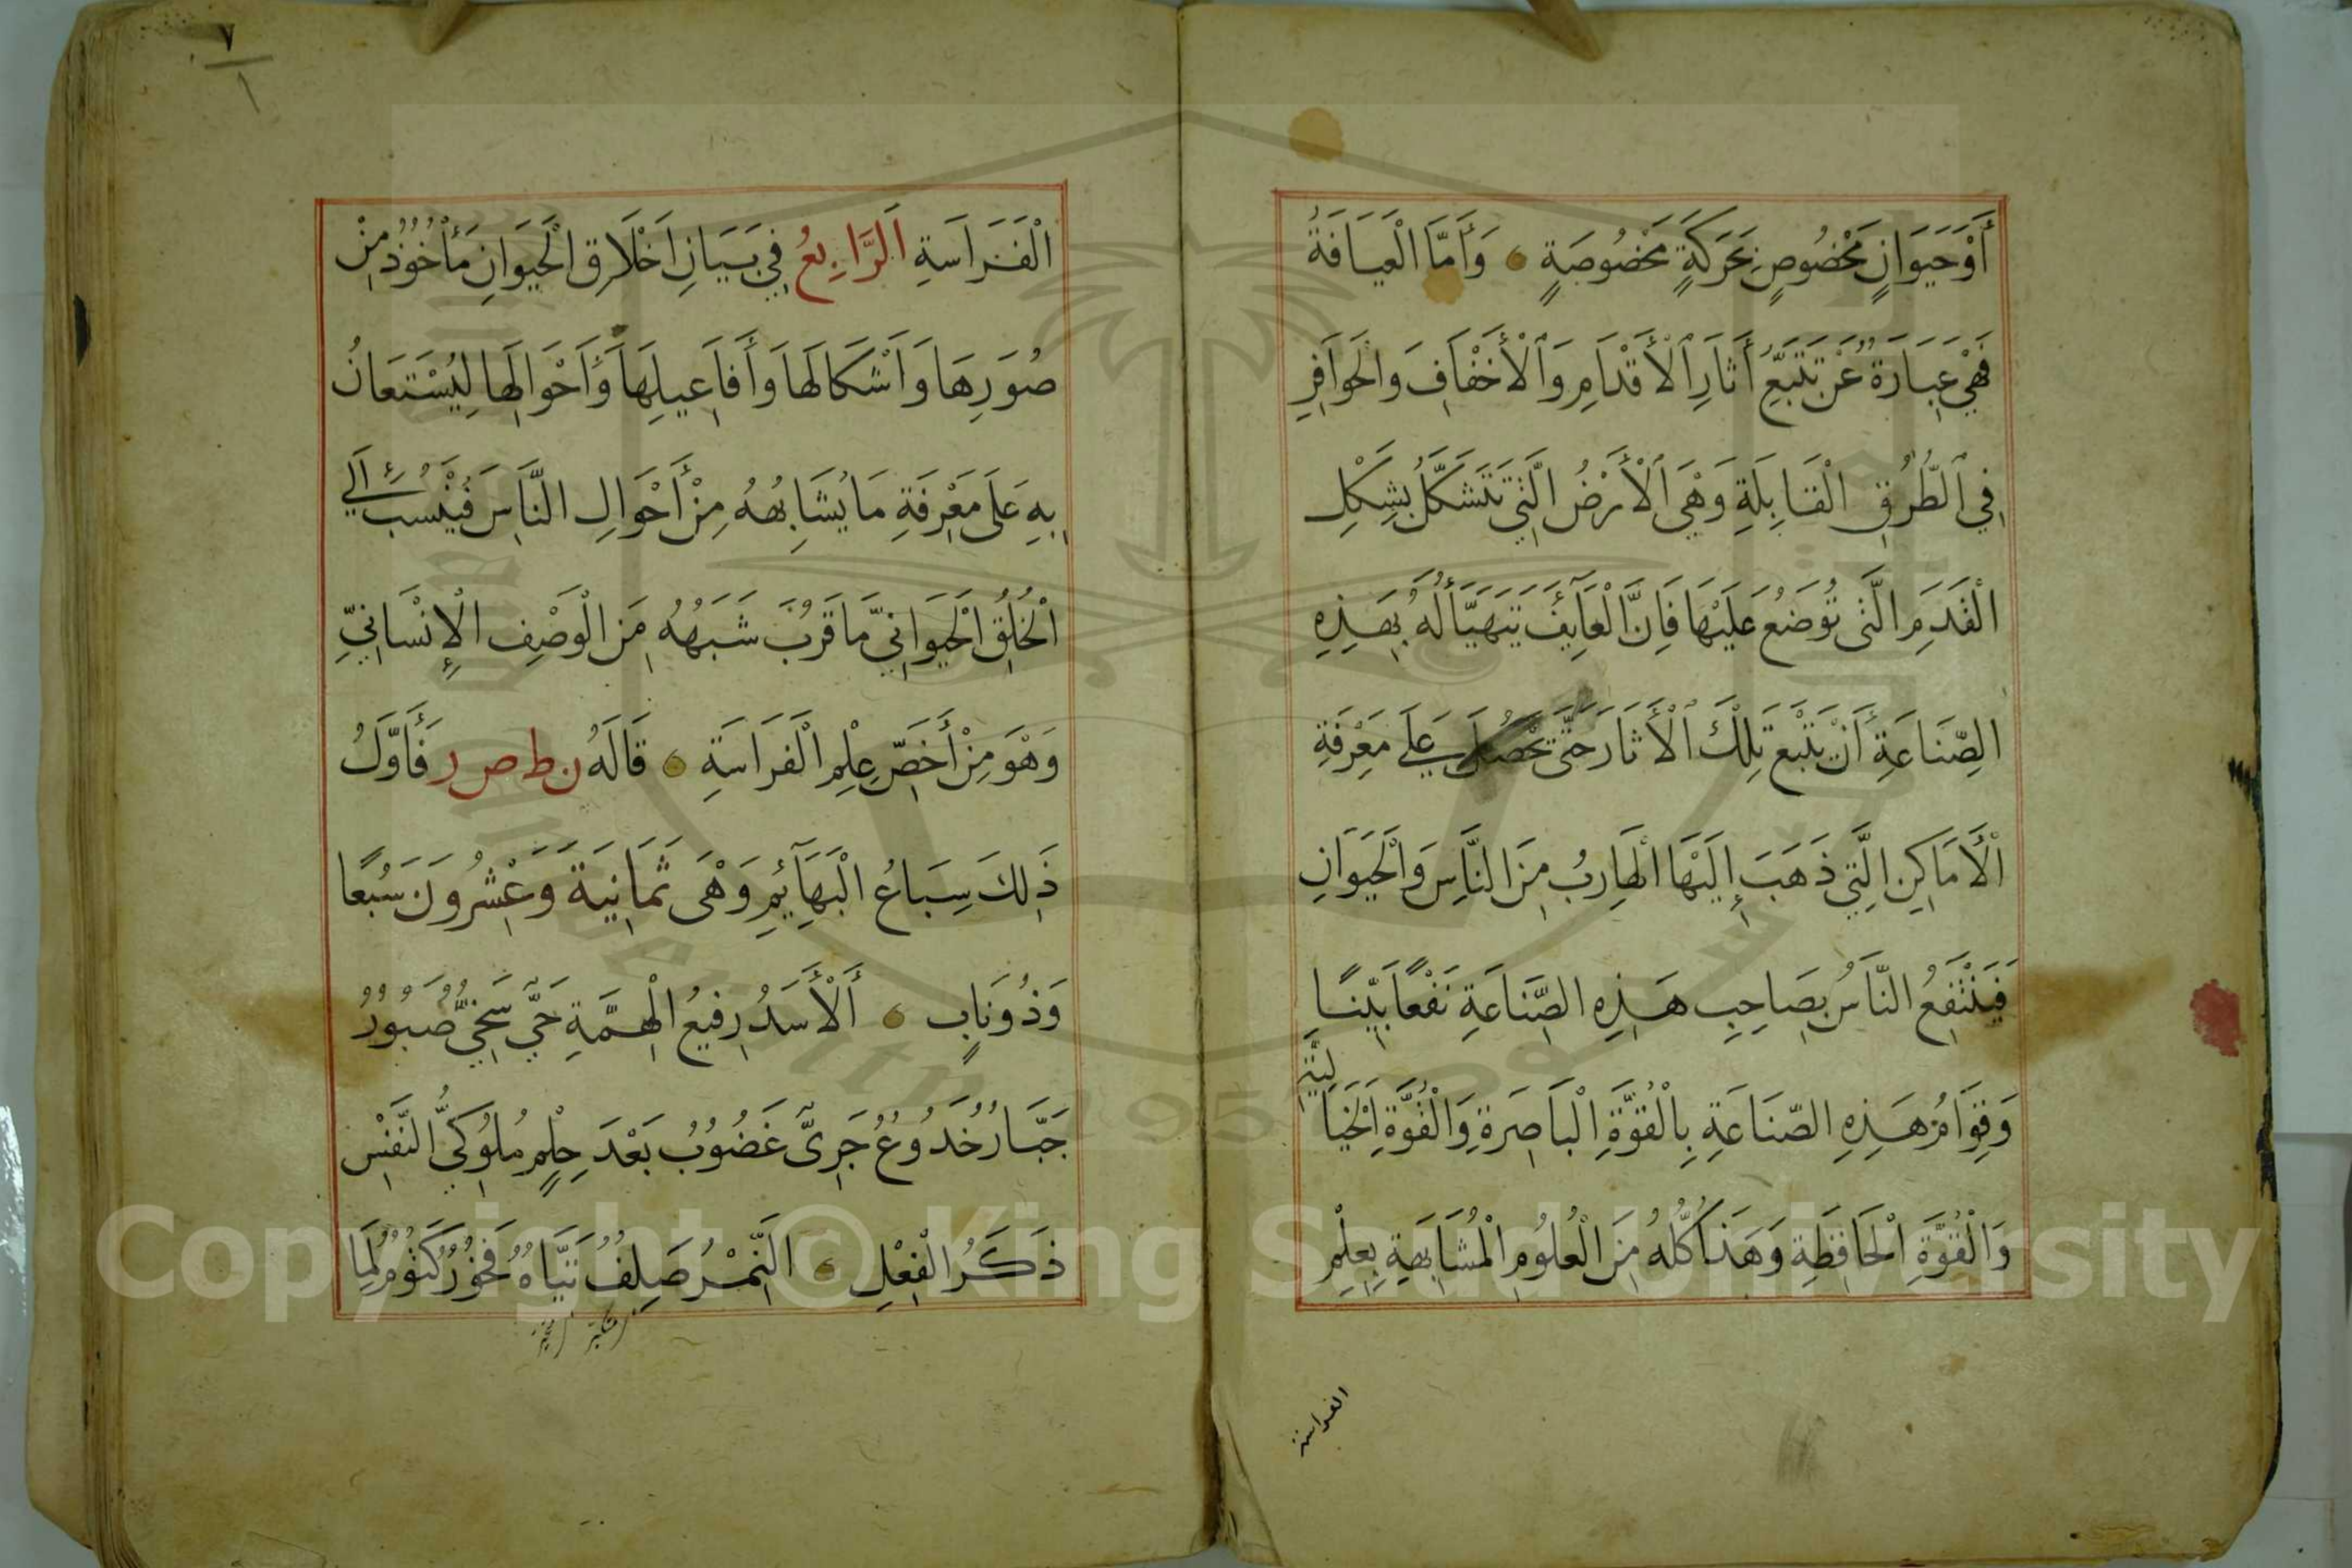 أَوْحَيَوَانٍ مَخْصُوصٍ بِحَرَكَةٍ مَخْصُوصَةٍ ۝ وَأَمَّا الْعِيَافَةُ
فَهْيَ عِبَارَةٌ عَنْ تَتَبُّعِ أَثَارِ الْأَقْدَامِ وَالْأَخْفَافِ وَالْحَوَافِرِ
فِي الطُّرُقِ الْقَابِلَةِ وَهْيَ الْأَرْضُ الَّتِي تَتَشَكَّلُ بِشِكْلِ
الْقَدَمِ الَّتِى تُوضَعُ عَلَيْهَا فَاِنَّ الْعَآئِفَ يَتَهَيَّأُ لَهُ بِهَذِهِ
الصِّنَاعَةِ أَنْ يَتْبَعَ تِلْكَ الْأَثَارَ حَتَّى يَحْصُلَ عَلَى مَعْرِفَةِ
الْأَمَاكِنِ الَّتِي ذَهَبَ إِلَيْهَا الْهَارِبُ مِنَ النَّاسِ وَالْحَيَوَانِ
فَيَنْتَفِعُ النَّاسُ بِصَاحِبِ هَذِهِ الصِّنَاعَةِ نَفْعًا بَيِّنًا
وَقِوَامُ هَذِهِ الصِّنَاعَةِ بِالْقُوَّةِ الْبَاصِرَةِ وَالْقُوَّةِ الْخَيَالِيَّةِ
وَالْقُوَّةِ الْحَافِظَةِ وَهَذَا كُلُّهُ مِنَ الْعُلُومِ الْمُشَابَهَةِ بِعِلْمِ
الفراسة
٧
١
الْفَرَاسَةِ اَلرَّابِعُ فِي بَيَانِ اَخْلَاقِ الْحَيَوَانِ مَأْخُوذٌ مِنْ
صُوَرِهَا وَاَشْكَالِهَا وَأَفَاعِيلِهَا وَأَحْوَالِهَا لِيُسْتَعَانُ
بِهِ عَلَى مَعْرِفَةِ مَا يُشَابِهُهُ مِنْ أَحْوَالِ النَّاسِ فَيُنْسَبُ اِلَى
الْخُلُقِ الْحَيَوَانِيِّ مَا قَرُبَ شَبَهُهُ مِنَ الْوَصْفِ الْإِنْسَانِيِّ
وَهْوَ مِنْ أَخَصِّ عِلْمِ الْفَرَاسَةِ ۝ قَالَهُ ن ط ص ر فَأَوَّلُ
ذَلِكَ سِبَاعُ الْبَهَآئِمِ وَهْىَ ثَمَانِيَةٌ وَعِشْرُونَ سَبُعًا
وَذُو نَابٍ ۝ أَلْأَسَدُ رَفِيعُ الْهِمَّةِ حَيِيٌّ سَخِيٌّ صَبُورٌ
جَبَّارٌ خَدُوعٌ جَرِىٌّ غَضُوبٌ بَعْدَ حِلْمٍ مُلُوكِيُّ النَّفْسِ
ذَكَرُ الْفِعْلِ ۝ النَّمْرُ صَلِفٌ تَيَّاهٌ فَخُورٌ كَتُومٌ لِمَا
Copyright © King Saud University